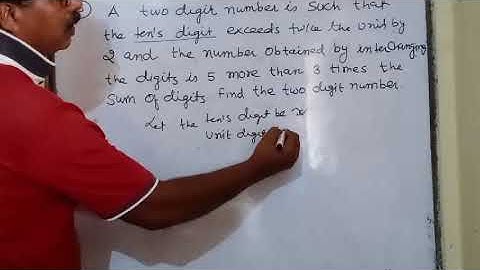 A two digit number is such that
the ten's digit exceeds twice the unit by
2 and the number obtained by interchanging
the digits is 5 more than 3 times the
sum of digits find the two digit number.
Let the ten's digit be x
unit digit